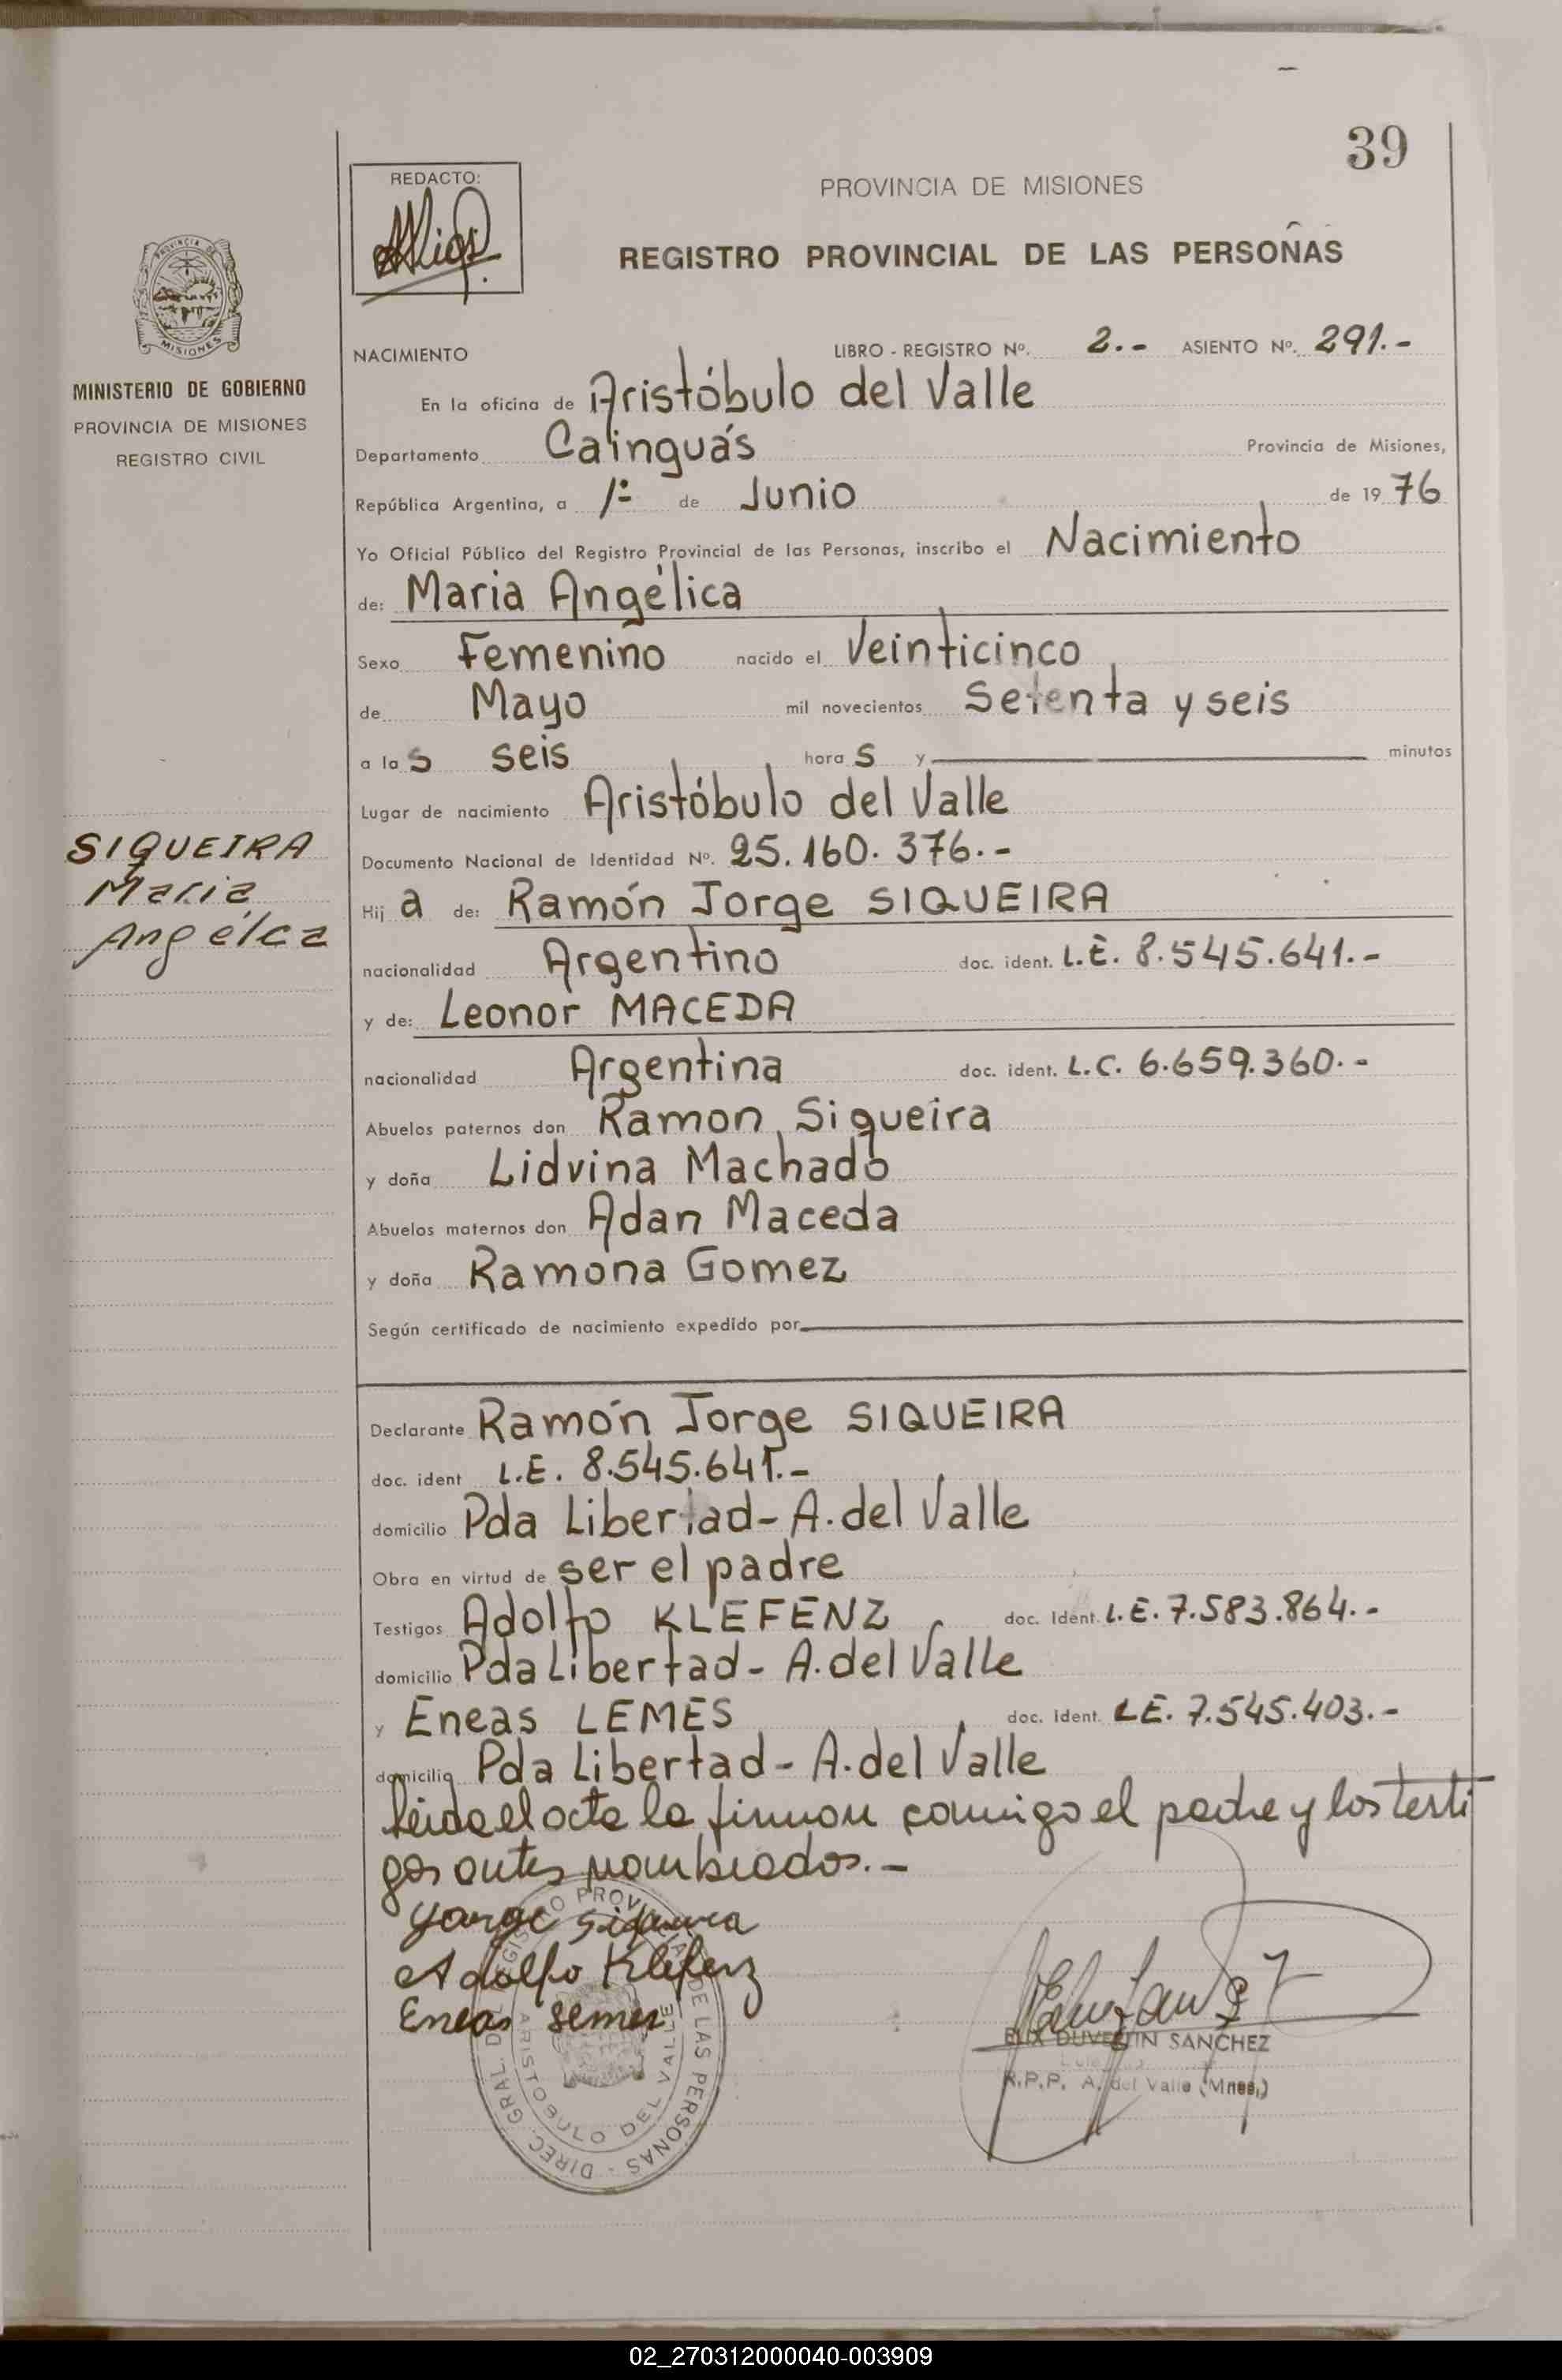 39
REDACTO:
PROVINCIA DE MISIONES
REGISTRO PROVINCIAL DE LAS PERSONAS
MISIONES
MINISTERIO DE GOBIERNO
PROVINCIA DE MISIONES
REGISTRO CIVIL
NACIMIENTO LIBRO - REGISTRO Nº. 2.- ASIENTO Nº. 291.-
En la oficina de Aristóbulo del Valle
Departamento Cainguás Provincia de Misiones,
República Argentina, a 1º de Junio de 1976
Yo Oficial Público del Registro Provincial de las Personas, inscribo el Nacimiento
de: Maria Angélica
Sexo Femenino nacido el Veinticinco
de Mayo mil novecientos Setenta y seis
a las seis horas y minutos
Lugar de nacimiento Aristóbulo del Valle
Documento Nacional de Identidad Nº. 25.160.376.-
SIQUEIRA
Maria
Angélca
Hija de: Ramón Jorge SIQUEIRA
nacionalidad Argentino doc. ident. L.E. 8.545.641.-
y de: Leonor MACEDA
nacionalidad Argentina doc. ident. L.C. 6.659.360.-
Abuelos paternos don Ramon Siqueira
y doña Lidvina Machado
Abuelos maternos don Adan Maceda
y doña Ramona Gomez
Según certificado de nacimiento expedido por
Declarante Ramón Jorge SIQUEIRA
doc. ident L.E. 8.545.641.-
domicilio Pda Libertad- A. del Valle
Obra en virtud de ser el padre
Testigos Adolfo KLEFENZ doc. Ident. L.E. 7.583.864.-
domicilio Pda Libertad- A. del Valle
y Eneas LEMES doc. ident. L.E. 7.545.403.-
domicilio Pda Libertad- A. del Valle
leida el acta la firman conmigo el padre y los testi
gos antes nombrados.-
Jorge Siqueira
Adolfo Klefenz
Eneas Lemes
DIREC. GRAL. DEL REGISTRO PROVINCIAL DE LAS PERSONAS
ARISTOBULO DEL VALLE
DUVERTIN SANCHEZ
R.P.P. A. del Valle (Mnes.)
02_270312000040-003909